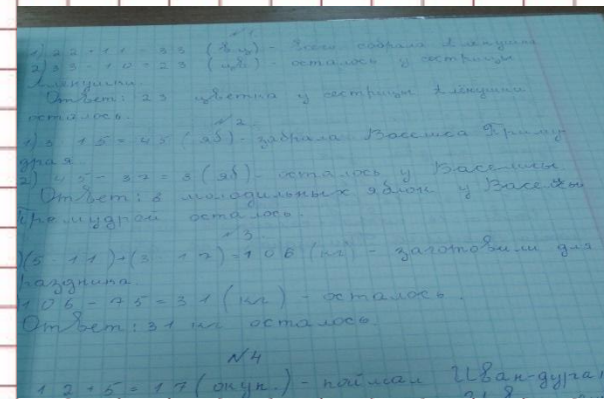 №1
1) 22+11=33 (цв.) - всего собрала Алёнушка
2) 33-10=23 (цв.) - осталось у сестрицы
Алёнушки.
Ответ: 23 цветка у сестрицы Алёнушки
осталось.
№2
1) 3 · 15 = 45 (яб) - забрала Василиса Прему
драя.
2) 45 - 37 = (яб) - осталось у Василисы
Ответ: 8 молодильных яблок у Василисы
Премудрой осталось.
№3
)(5 · 11)+(3 · 17)=106 (кг) - заготовили для
раздника.
106 - 75 = 31 (кг) - осталось.
Ответ: 31 кг осталось.
№4
12+5=17 (окун.) - поймал Иван-дурак